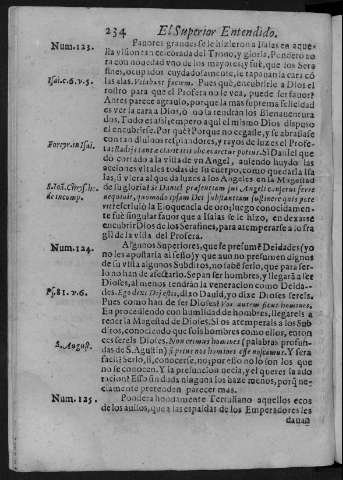 234 El Superior Entendido.
Num. 123. Favores grandes se le hizieron a Isaias en aque-
lla vision tan celebrada del Trono, y gloria. Pondero o-
ra con novedad vno de los mayores, y fue, que los Sera
fines, ocupidos cuydadosamente, le tapauan la cara cõ
Isai. c. 6. v. 5. las alas. Velabant faciem. Pues què, encubrirle a Dios el
rostro para que el Profeta no le vea, puede ser favor?
Antes parece agrauio, porque la mas suprema felicidad
es ver la cara a Dios, ò no la tendràn los Bienauentura
dos. Todo es assi, empero aqui el mismo Dios dispuso
el encubrirse. Por què? Porque no cegasse, y se abrasasse
con tan diuinos resplandores, y rayos de luzes el Profe-
Foreyr. in Isai. ta: Si Daniel que
do cortado a la vista de vn Angel, auiendo huydo las
acciones vitales todas de su cuerpo, como quedaria Isa
ias, si a ver llegara al que dà luzes a los Angeles en la Magestad
de su gloria? si Daniel præsentiam sui Angeli conserui ferre
nequiuit, quomodo ipsam Dei substantiam sustinere quis pote
rit reflectiuò la Eloquencia de oro, luego conocidamen-
te fuè singular fauor que a Isaias se le hizo, en dexarse
encubrir Dios de los Serafines, para atemperarse a lo fra
gil de la vista del Profeta.
Num. 124. Algunos Superiores, que se presumẽ Deidades (yo
no les apostarla al seño) y que aun no presumen dignos
de su vista algunos Subditos, no sabẽ serlo, que para ser-
lo no han de afectarlo. Sepan ser hombres, y llegarà a ser
Dioses, al menos tendràn la veneracion como Deida-
Ps. 81. v. 6. des. Ego dixi Dij estis, dixo Dauid, yo dixe Dioses sereis.
Pues como han de ser Dioses? Vos autem sicut homines.
En procediendo con humildad de hombres, llegareis a
tener la Magestad de Dioses. Si os atemperais a los Sub
ditos, conociendo que sois hombres como ellos, enton-
S. August. ces sereis Dioses. Non erimus homines (palabras profun-
das de S. Agustin) si prius nos homines esse noscamus. Y sera
facil serlo, si conocerse, no por esso no lo son los que no
se conocen. Y la presuncion necia, y el querer la ado
racion? Esso sin duda ninguna los haze menos, porq̃ ne-
ciamente pretenden parecer mas.
Num. 125. Pondera hondamente Tertuliano aquellos ecos
de los auisos, que a las espaldas de los Emperadores les
dauan